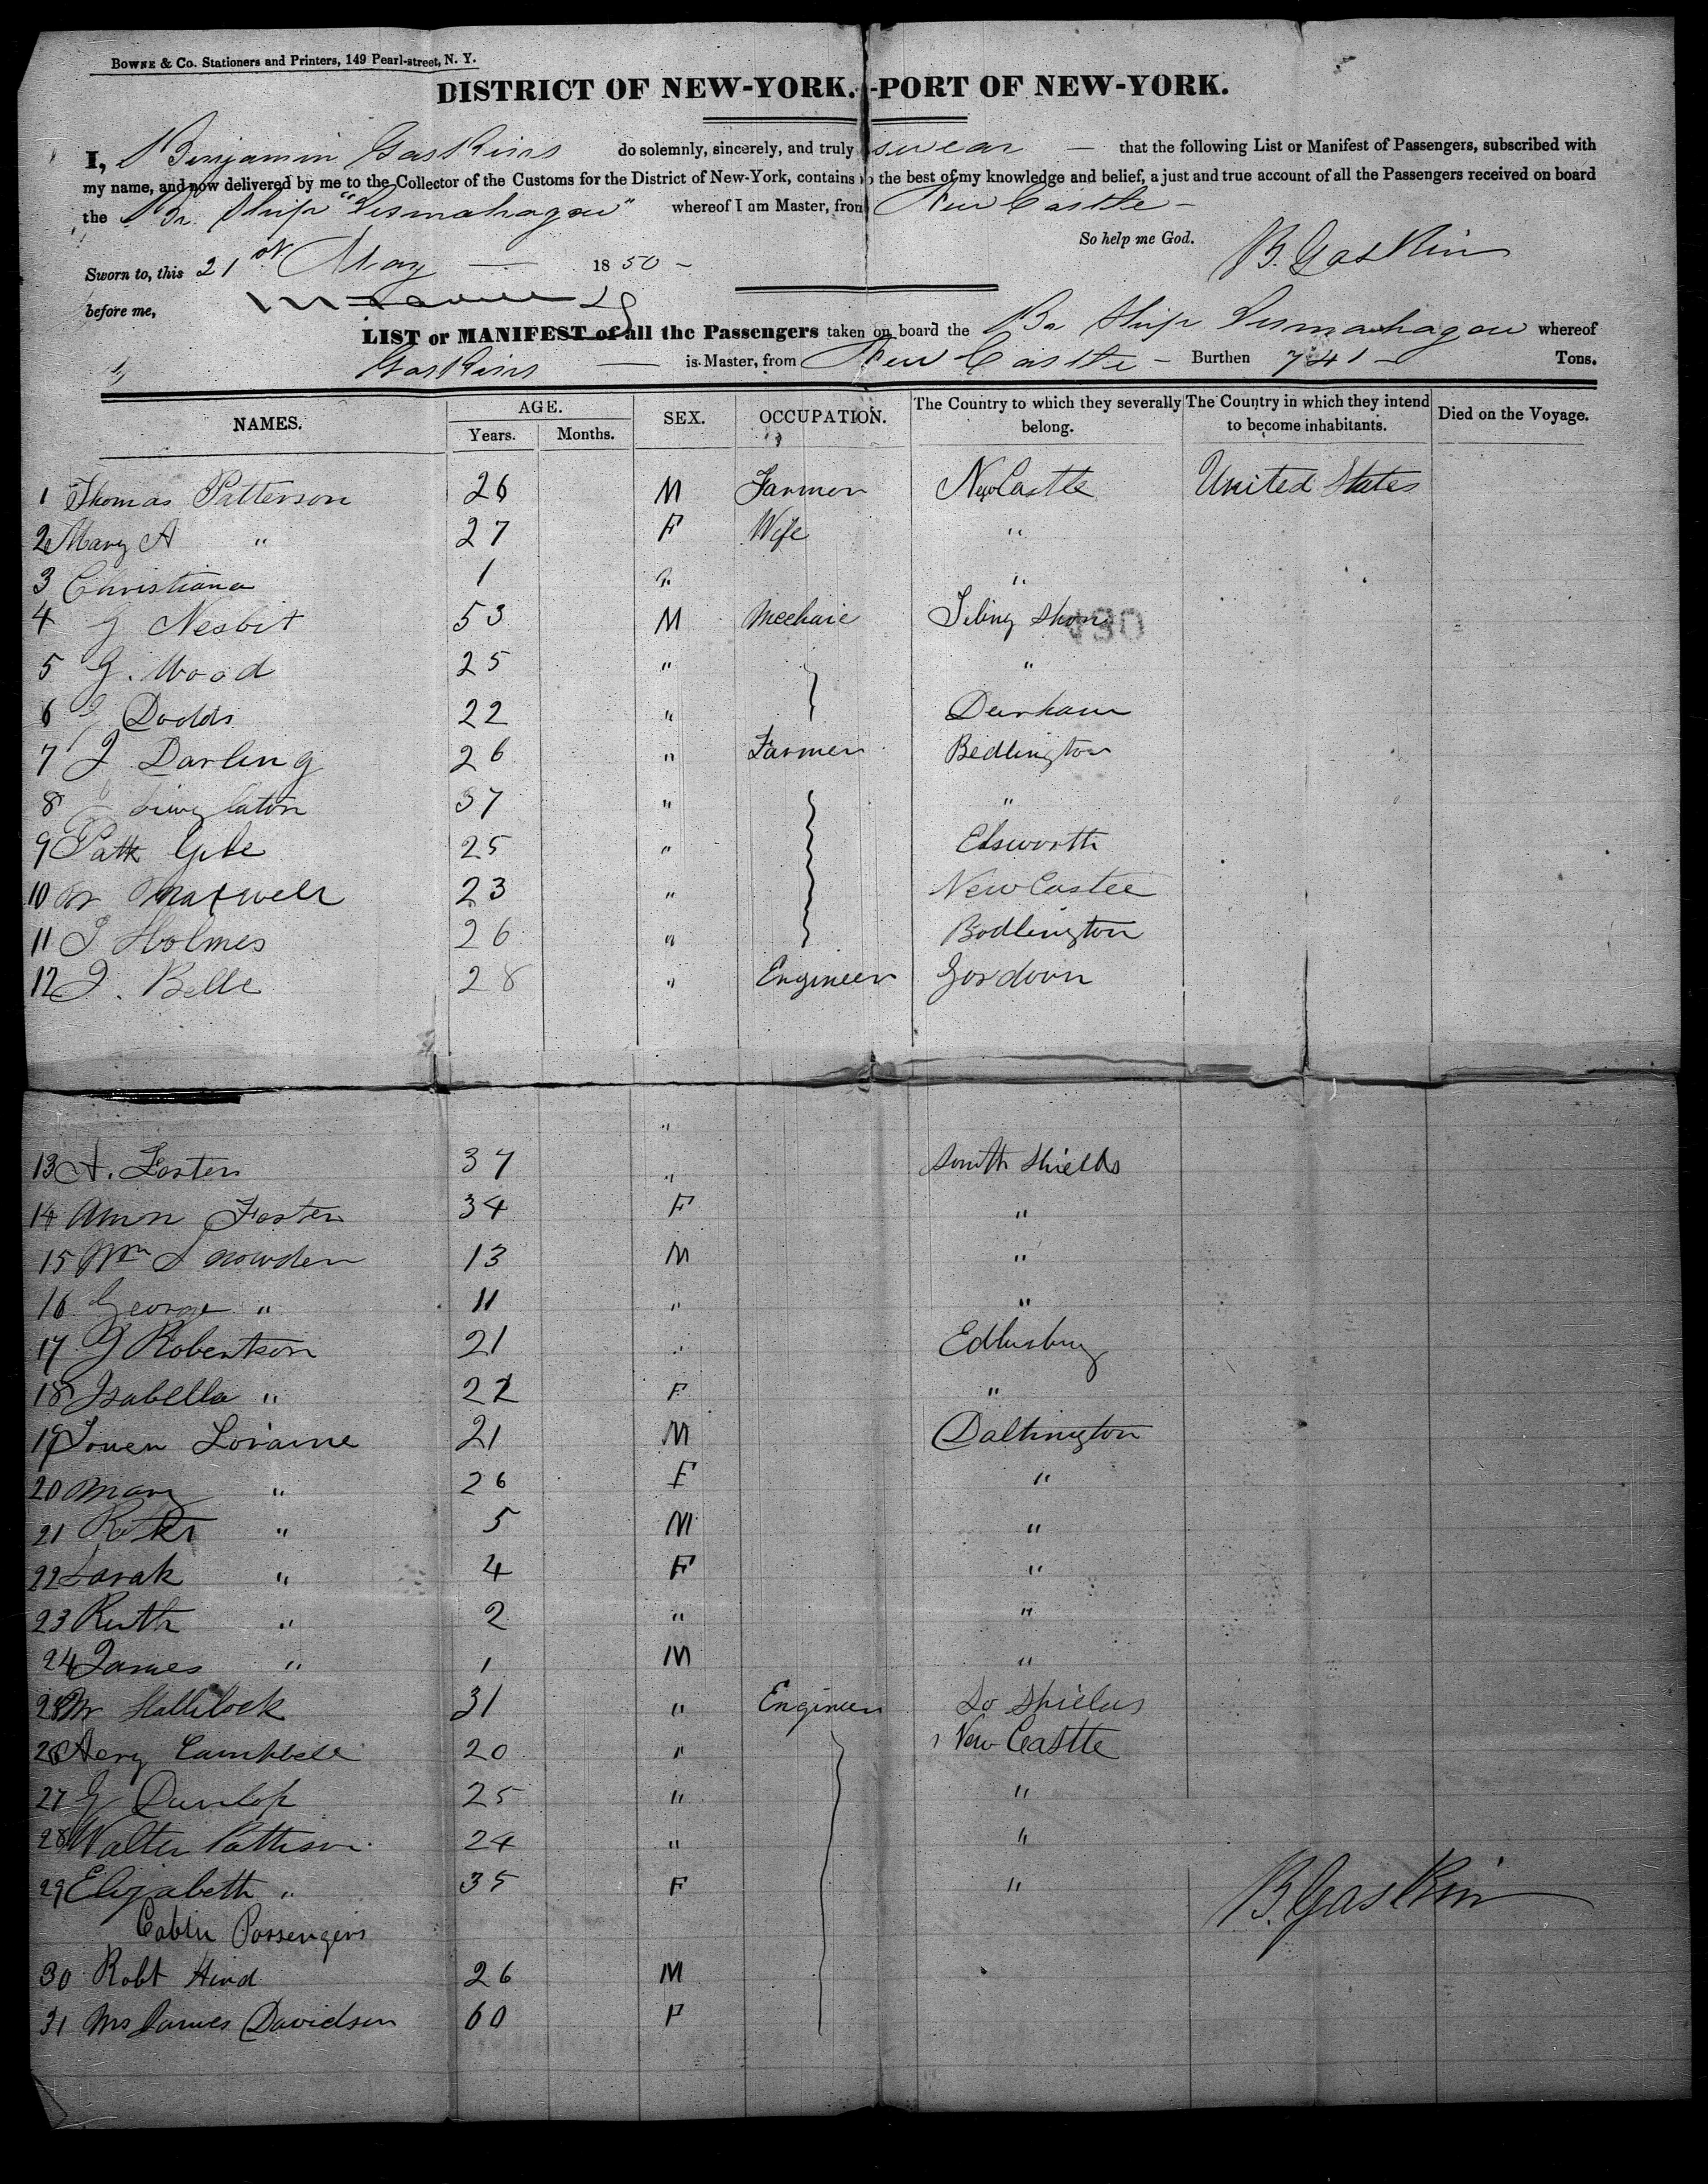 BOWNE & Co. Stationers and Printers, 149 Pearl-street, N. Y.
DISTRICT OF NEW-YORK.-PORT OF NEW-YORK.
I, Benjamin Gaskins do solemnly, sincerely, and truly swear — that the following List or Manifest of Passengers, subscribed with
my name, and now delivered by me to the Collector of the Customs for the District of New-York, contains to the best of my knowledge and belief, a just and true account of all the Passengers received on board
the Br. Ship "Lismahagow" whereof I am Master, from New Castle —
So help me God. B. Gaskin
Sworn to, this 21st May — 1850 —
before me,
LIST or MANIFEST of all the Passengers taken on board the Br Ship Lismahagow whereof
Gaskins — is Master, from New Castle — Burthen 741 — Tons.
NAMES. AGE. Years. Months. SEX. OCCUPATION. The Country to which they severally belong. The Country in which they intend to become inhabitants. Died on the Voyage.
1 Thomas Patterson 26 M Farmer New Castle United States
2 Mary A " 27 F Wife "
3 Christiana 1 " "
4 G Nesbit 53 M Mechaic
430
5 G. Wood 25 " "
6 Dodds 22 " Durham
7 J Darling 26 " Farmer Bedlington
8 37 " "
9 Patk 25 " Elsworth
10 Maxwell 23 " New Castle
11 J Holmes 26 " Bodlington
12 J. Belle 28 " Engineer Gordoon
"
13 A. Foster 37 " South Shields
14 Ann Foster 34 F "
15 Wm Snowden 13 M "
16 George " 11 " "
17 G Robertson 21 "
18 Isabella " 22 F "
19 Loraine 21 M Daltington
20 Mary " 26 F "
21 " 5 M "
22 Sarah " 4 F "
23 Ruth " 2 " "
24 James " 1 M "
25 Hallilock 31 " Engineer So Shields
26 Campbell 20 " New Castle
27 G Dunlop 25 " "
28 Walter Pattison 24 " "
29 Elizabeth " 35 F "
B. Gaskin
Cabin Passengers
30 Robt Hind 26 M
31 Mrs James Davidson 60 F